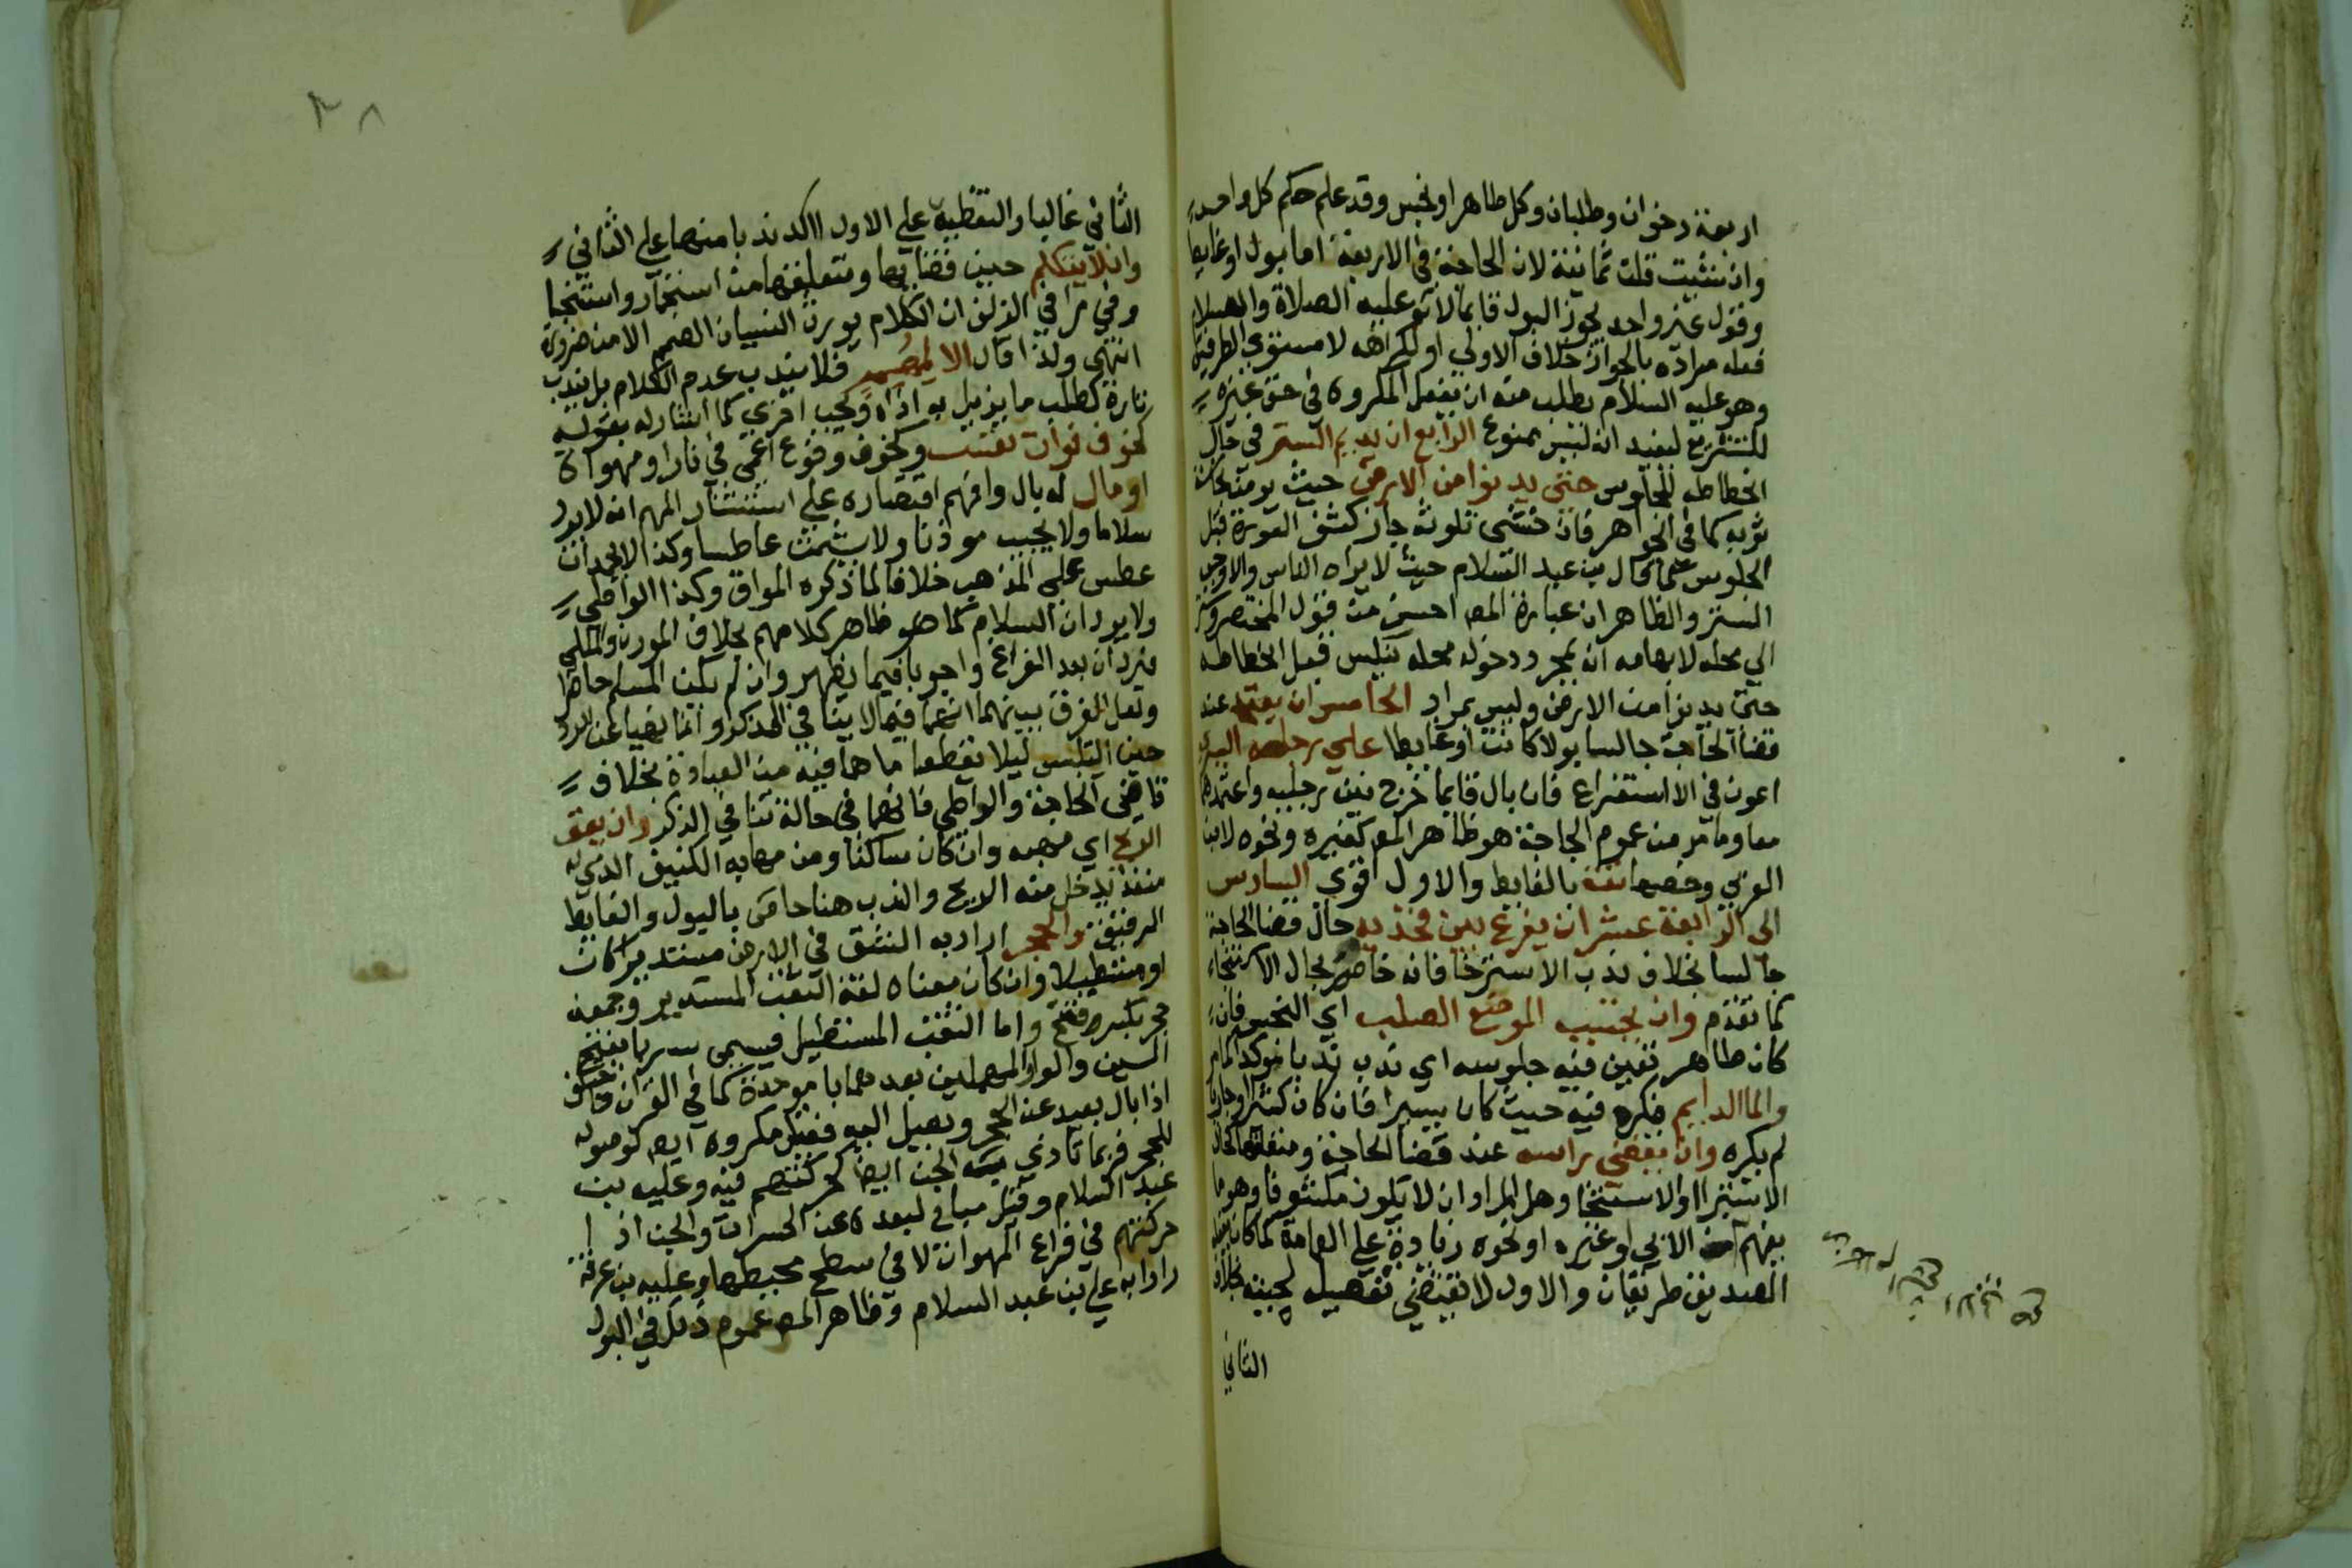 اربعة رخوان وطلبان وكل طاهر او نجس وقد علم حكم كل واحد
وان شئت قلت ثمانية لان الحاجة في الاربعة اما بول او غايط
وقول غير واحد يجوز البول قايما لانه عليه الصلاة والسلام
فعله مراده بالجواز خلاف الاولي او الكراهه لا مستوي الطرفين
وهو عليه السلام يطلب منه ان يفعل المكروه في حق غيره
للتشريع ليفيد انه ليس بممنوع الرابع ان يديم الستر في حال
انحطاطه للجلوس حتي يدنوا من الارض حيث يومن نجاسة
ثوبه كما في الجواهر فان خشي تلوثه جاز كشف العورة قبل
الجلوس كما قال بن عبد السلام حيث لا يراه الناس والا وجب
الستر والظاهر ان عبارة المص احسن من قول المختصر وستر
الي محله لابهامه انه بمجرد دخوله محله يجلس قبل انحطاطه
حتي يدنوا من الارض وليس بمراد الخامس ان يعتمد عند
قضا الحاجة جالسا بولا كانت او غايطا علي رجله اليسري
اعون في الاستفراغ فان بال قايما فرج بين رجليه واعتمدهما
معا وما مر من عموم الحاجة هو ظاهر المص كغيره ونحوه لابن
العربي وخصها بالغايط والاول اقوي السادس
الي الرابعة عشر ان يفرج بين فخذيه حال قضا الحاجة
جالسا بخلاف ندب الاسترخا فانه خاص بحال الاستنجاء
كما تقدم وان يجتنب الموضع الصلب اي النجس فان
كان طاهر تعين فيه جلوسه اي ندب ندبا موكدا كما مر
والما الدايم فكره فيه حيث كان يسيرا فان كان كثيرا او جاريا
لم يكره وان يغطي راسه عند قضا الحاجة ومتعلقها كحال
الاستبرا او الاستنجا وهل المراد ان لا يكون مكشوفا وهو ما
يفهم الابي او غيره او نحوه زيادة علي العامة كما كان يفعل
الصديق طريقان والاول لا تقتضي تفصيل لحيته بخلاف
الثاني
٢٨
الثاني غاليا والتغطية علي الاول اكد ندبا منها علي الثاني
وان لا يتكلم حين قضايها ومتعلقها من استجمار واستنجا
وفي مراقي الزلف ان الكلام يورث النسيان الصمم الا من ضرورة
انتهي ولذا قال الا لمهم فلا يندب عدم الكلام بل يندب
تارة كطلب ما يزيل به اذاه ويجب اخري كما اشار له بقوله
كخوف فوات نفس وكخوف وقوع اعمي في نار او مهواة
او مال له بال وافهم اقتصاره علي استثنا المهم انه لا يرد
سلاما ولا يجيب موذنا ولا يشمت عاطسا وكذا لا يحمد ان
عطس علي المذهب خلافا لما ذكره المواق وكذا الواطي
ولا يردان السلام كما هو ظاهر كلامهم بخلاف الموذن والملبي
فيردان بعد الفراغ واجوبا فيما يظهر وان لم يكن المسلم حاضرا
ولعل الفرق بينهما انهما فيما لا ينافي الذكر وانما نهيا عن الرد
حين التلبس ليلا يقطعا ما هما فيه من العبادة بخلاف
قاضي الحاجة والواطي فانهما في حالة تنافي الذكر وان يتق
الريح اي مهبه وان كان ساكنا ومن مهابه الكنيف الذي له
منفذ يدخل منه الريح والندب هنا خاص بالبول والغايط
الرقيق والجحر اراد به الشق في الارض مستديرا كان
او مستطيلا وان كان معناه لغة الثقب المستدير وجمعه
جحر بكسر ففتح واما الثقب المستطيل فيسمي سربا بفتح
السين والواو المهملين بعدهما با موحدة كما في القران واختلف
اذا بال بعيد عن الجحر ويصل اليه فقيل مكروه ايض كوصوله
للجحر فربما تاذي به الجن ايضا لحركتهم فيه وعليه بن
عبد السلام وقيل مباح لبعده عن الحشرات والجن اذ
حركتهم في فراغ المهواة لا في سطح محيطها وعليه بن عرفة
رادا به علي بن عبد السلام وظاهر المص عموم ذلك في البول